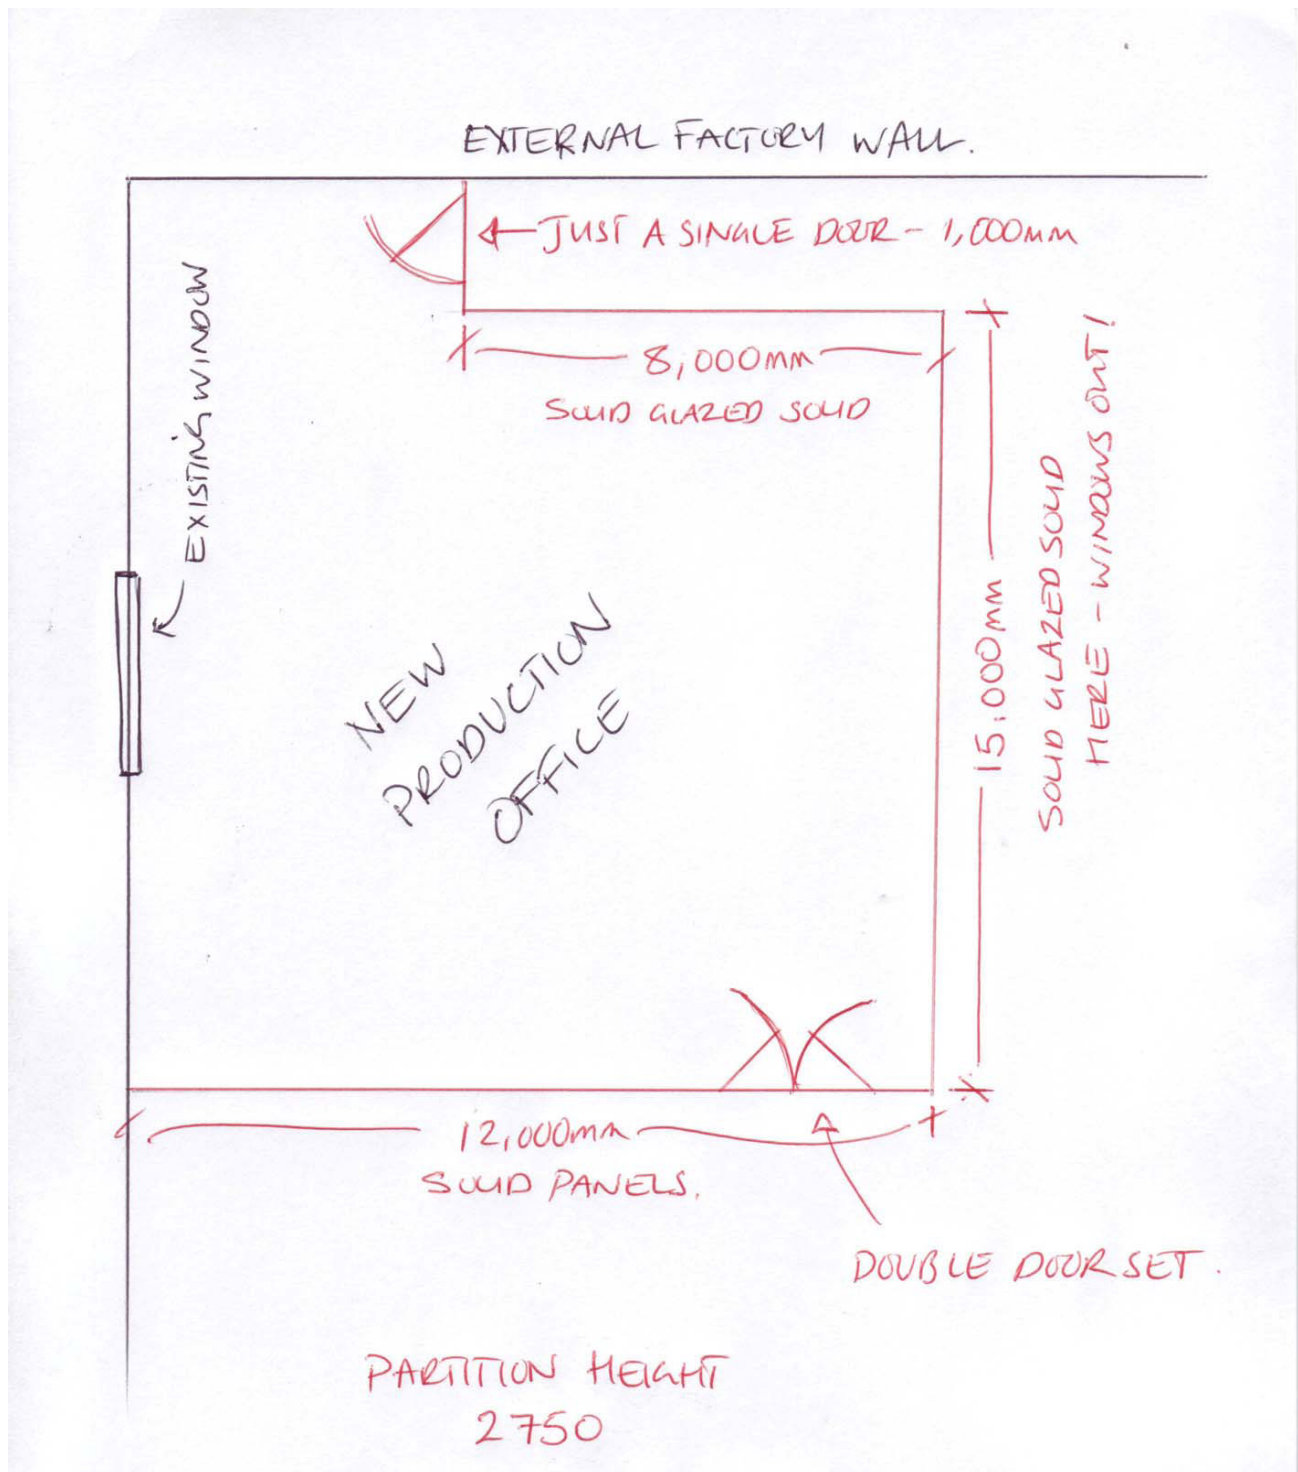 EXTERNAL FACTORY WALL.
JUST A SINGLE DOOR - 1,000mm
EXISTING WINDOW
8,000mm
SOLID GLAZED SOLID
15,000mm
SOLID GLAZED SOLID
HERE - WINDOWS OUT!
NEW
PRODUCTION
OFFICE
12,000mm
SOLID PANELS.
DOUBLE DOOR SET.
PARTITION HEIGHT
2750